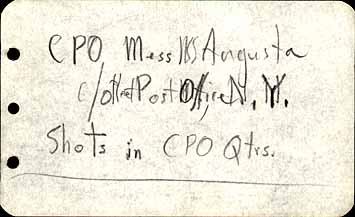 CPO Mess USS Augusta
c/o Fleet Post Office, N.Y.
Shots in CPO Qtrs.